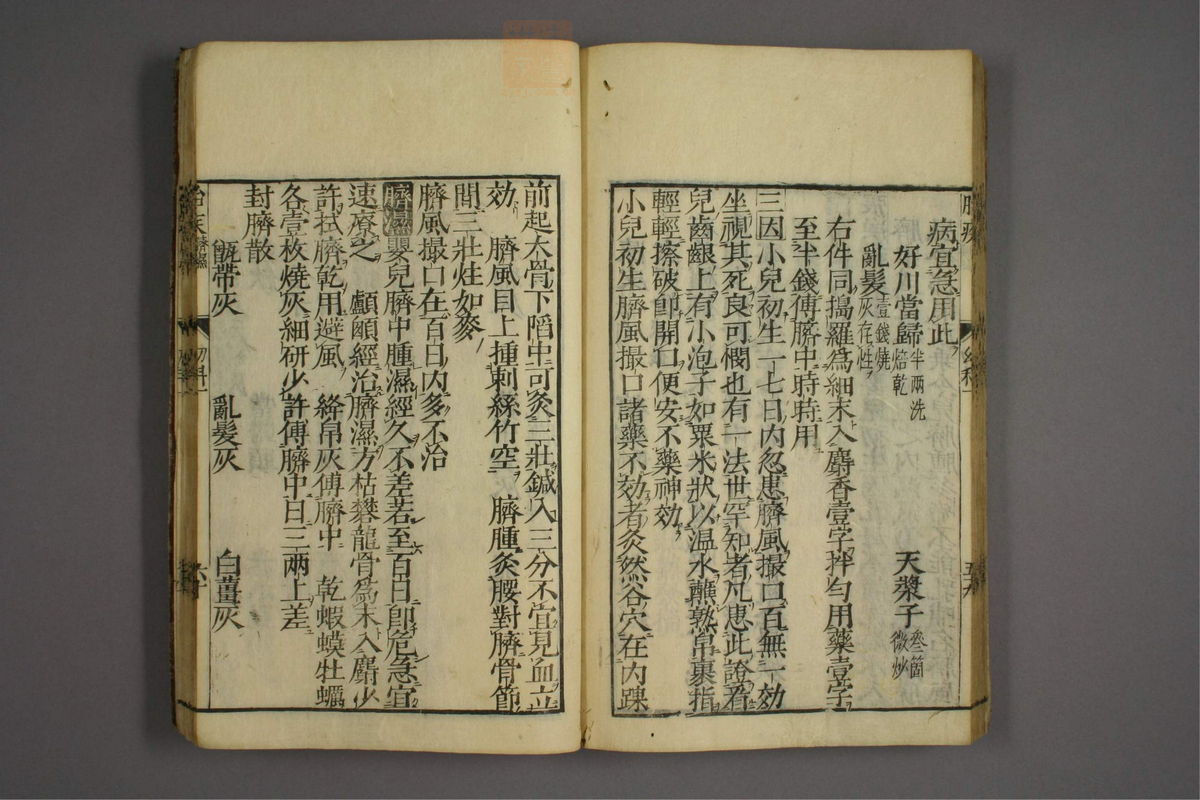 病宜急用此
好川當歸半兩洗焙乾　天漿子叁箇微炒
亂髮壹錢燒灰存性
右件同搗羅爲細末入麝香壹字拌勻用藥壹字
至半錢傅臍中時時用
三因小兒初生一七日内忽患臍風撮口百無一効
坐視其死良可憫也有一法世罕知者凡患此證看
兒齒齦上有小泡子如粟米狀以温水蘸熟帛裹指
輕輕擦破卽開口便安不藥神効
小兒初生臍風撮口諸藥不効者灸然谷穴在内踝
前起大骨下陷中可灸三壯鍼入三分不宜見血立
効　臍風目上揷刺絲竹空　臍腫灸腰對臍骨節
間三壯炷如麥
臍風撮口在百日内多不治
臍濕嬰兒臍中腫濕經久不差若至百日卽危急宜
速療之　顱顖經治臍濕方枯礬龍骨爲末入麝少
許拭臍乾用避風　絳帛灰傅臍中　乾蝦蟆牡蠣
各壹枚燒灰細研少許傅臍中日三兩上差
封臍散
甑帶灰　亂髮灰　白薑灰